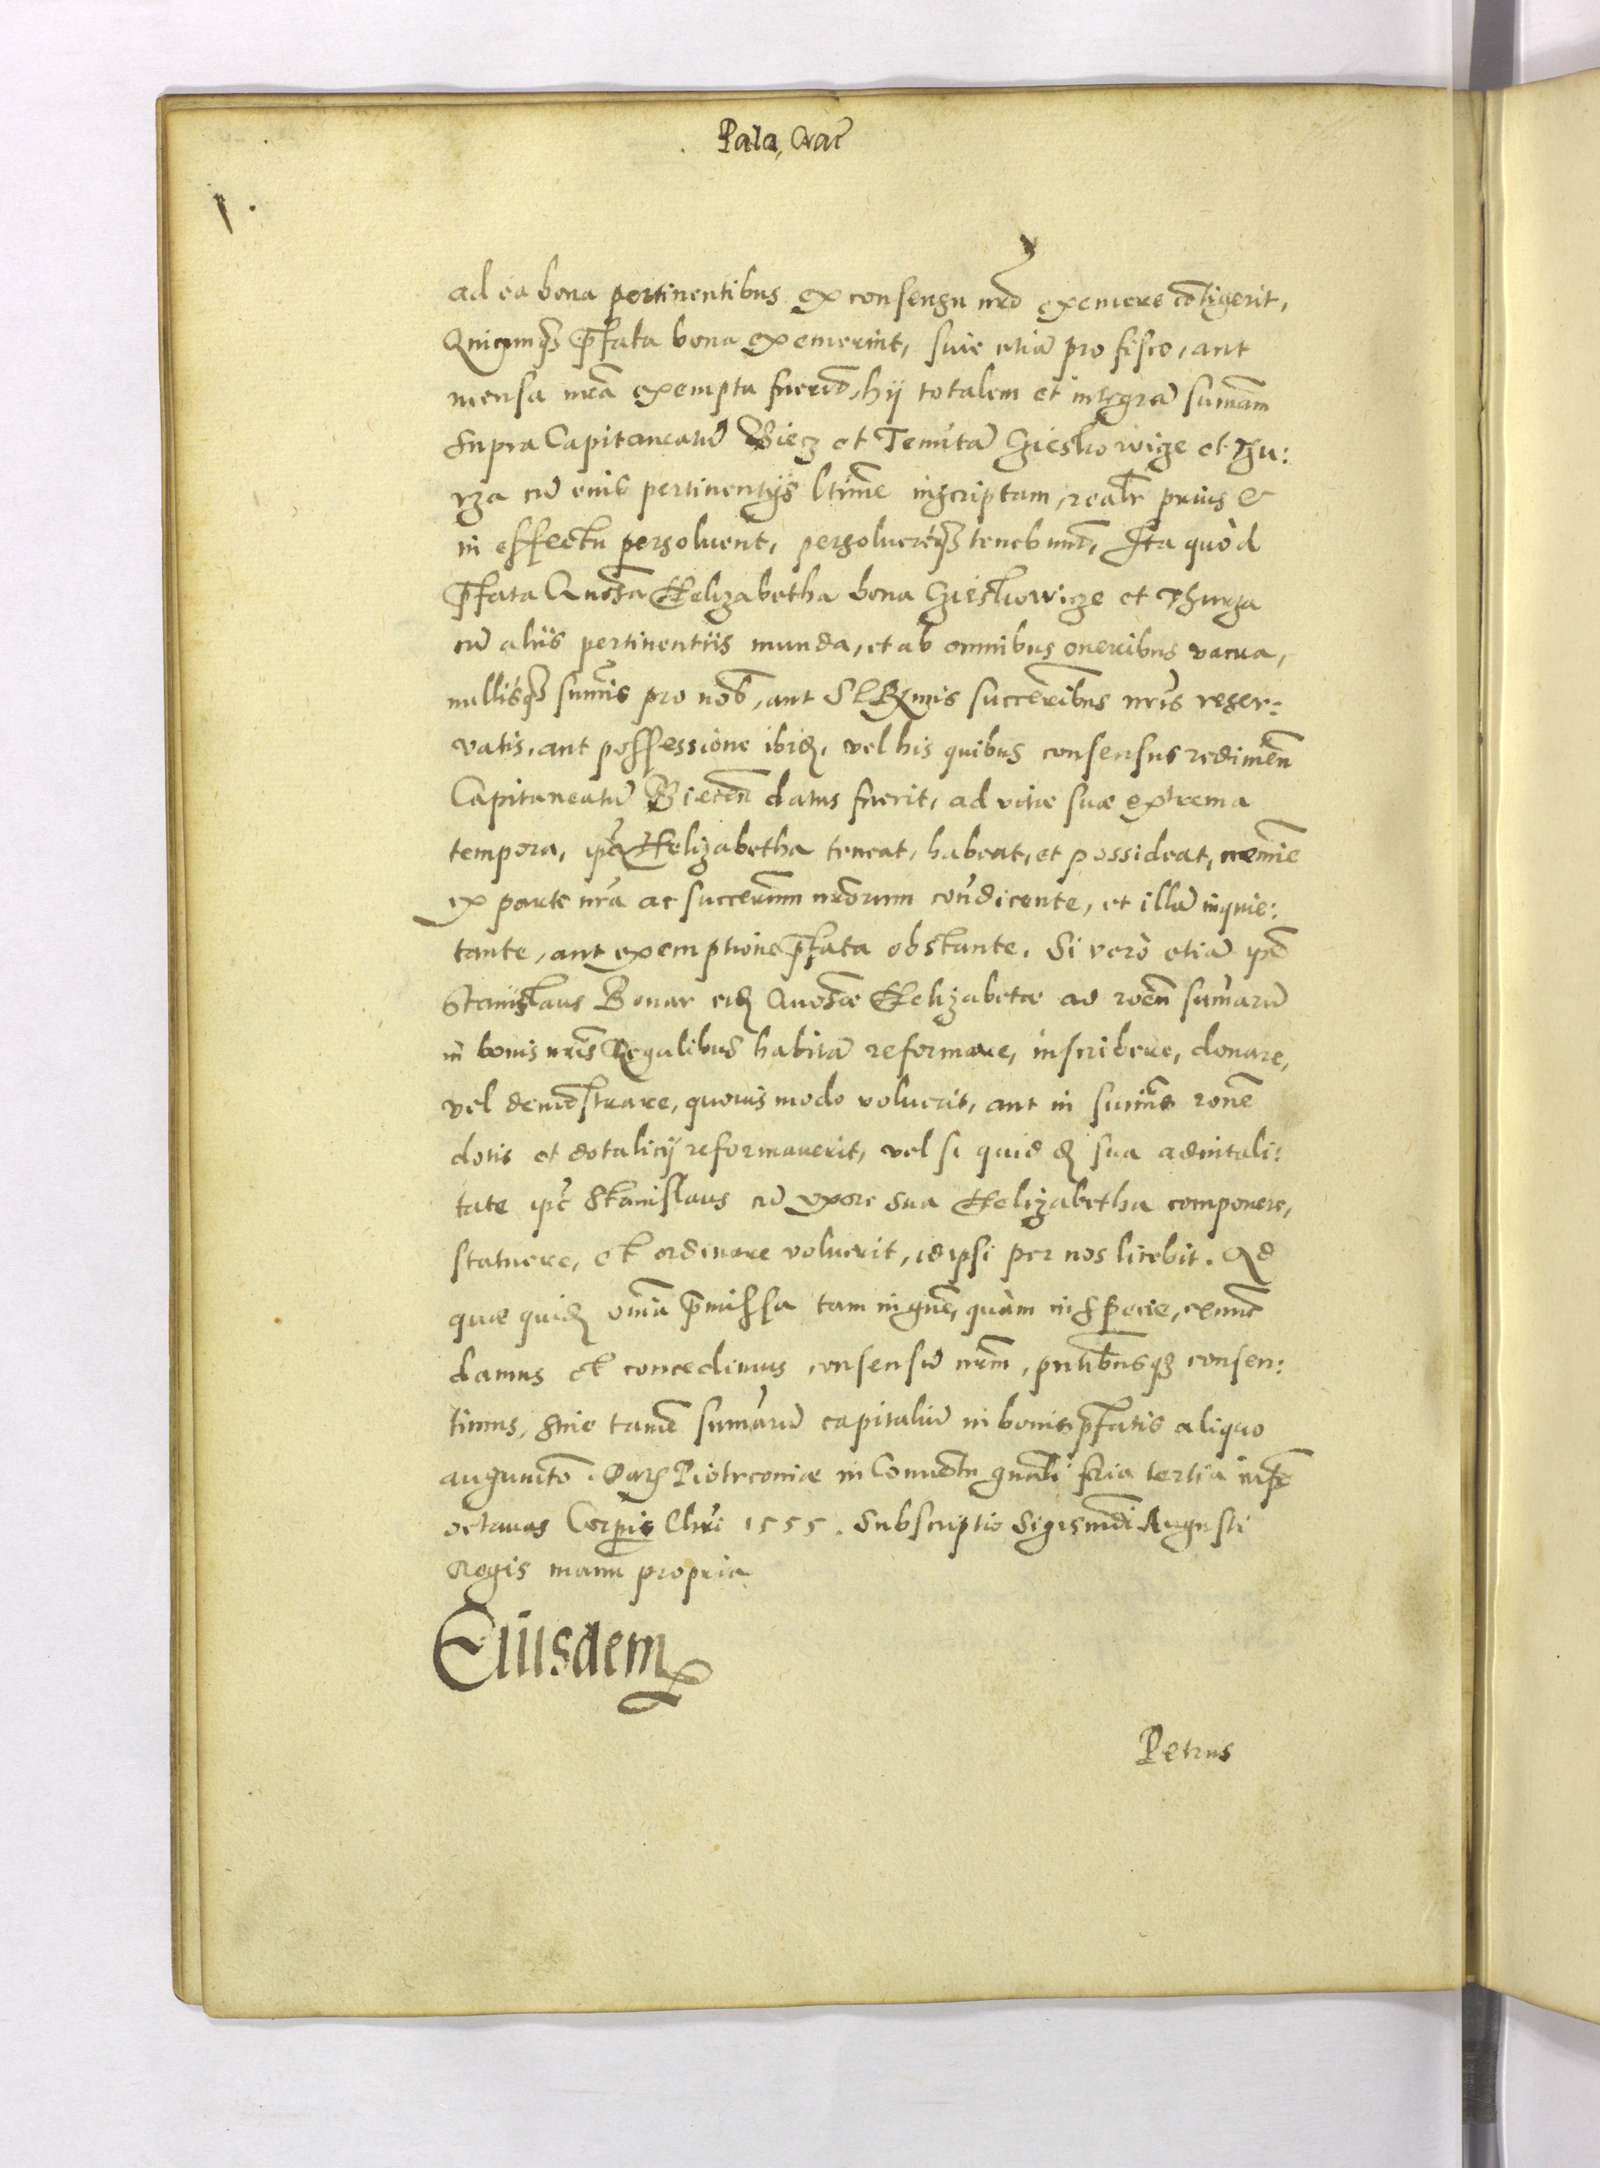 Pala, Crac̄
ad ea bona pertinentibus ex consensu nr̄o eximere cōtigerit,
Quicunqꝫ p̄fata bona exemerint, siue etiā pro fisco, aut
mensa nr̄a exempta fuerīt, hij totalem et integrā sum̄am
supra Capitaneatū Biecz et Tenutā Czieskowicze et Zbu:
rza cū om̄ib pertinentijs ltīme inscriptam, realr̄ prius &
in effectu persoluent, persoluereqꝫ tenebunt̄, Ita quòd
p̄fata Gn̄osa Helizabetha bona Czieskowicze et Zburza
cū aliis pertinentiis munda, et ab omnibus oneribus vacua,
nullisqꝫ sum̄is pro nob̄, aut SLRꝫmis succeribus nr̄is reser:
vatis, aut possessione ibidꝫ, vel his quibus consensus redimen̄
Capitaneatū Biecen̄ datus fuerit, ad vitæ suæ extrema
tempora, ip̄a Helizabetha teneat, habeat, et possideat, nemīe
ex parte nr̄a ac succerum nr̄orum con̄dicente, et illā inquie:
tante, aut exemptione p̄fata obstante. Si verò etiā ip̄e
Stanislaus Bonar eidꝫ Gn̄osæ Helizabetæ ad rōen̄ sum̄arū
in bonis nr̄is Regalibus habitā reformare, inscribere, donare,
vel demōstrare, quouis modo voluerit, aut in sum̄is rōne
dotis et dotalicij reformauerit, vel si quid dꝫ sua aduitali:
tate ip̄e Stanislaus cū vxore sua Helizabetha componere,
statuere, et ordinare voluerit, id ipsi per nos licebit. Ad
quæ quidꝫ om̄ia p̄missa tam in gn̄e, quàm in specie, exnunc̄
damus et concedimus consensū nr̄m, pn̄tibusqꝫ consen:
timus, sine tamē sum̄arū capitaliū in bonis p̄fatis aliquo
augmēto. Datꝫ Piotrcouiæ in Conuētu gn̄ali feria tertia infr̄
octauas Corp̱is Chri 1555. Subscriptio Sigismūdi Augusti
Regis manu propria
Eiusdem
Petrus